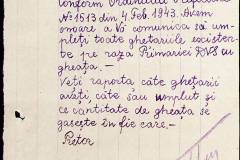 conform Ordinului
No 1513 din 4 Feb. 1943. Avem
onoare a Vă comunica să um-
pleți toate ghețăriile existen-
te pe raza Primăriei DVS cu
gheață. —
Veți raporta câte ghețării
aveți câte sau umplut și
ce cantitate de gheață se
gasește în fie care. —
Pretor